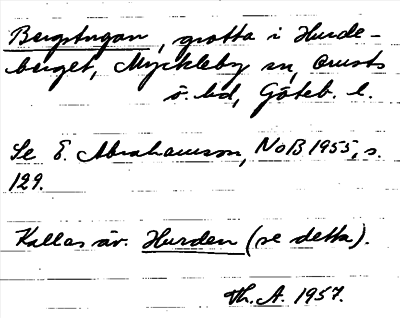 Bergstugan, grotta i Hurde-
berget, Myckleby sn, Orusts
ö. hd, Göteb. l.
Se E. Abrahamson, NoB 1955, s.
129.
Kallas äv. Hurden (se detta).
Th. A. 1957.